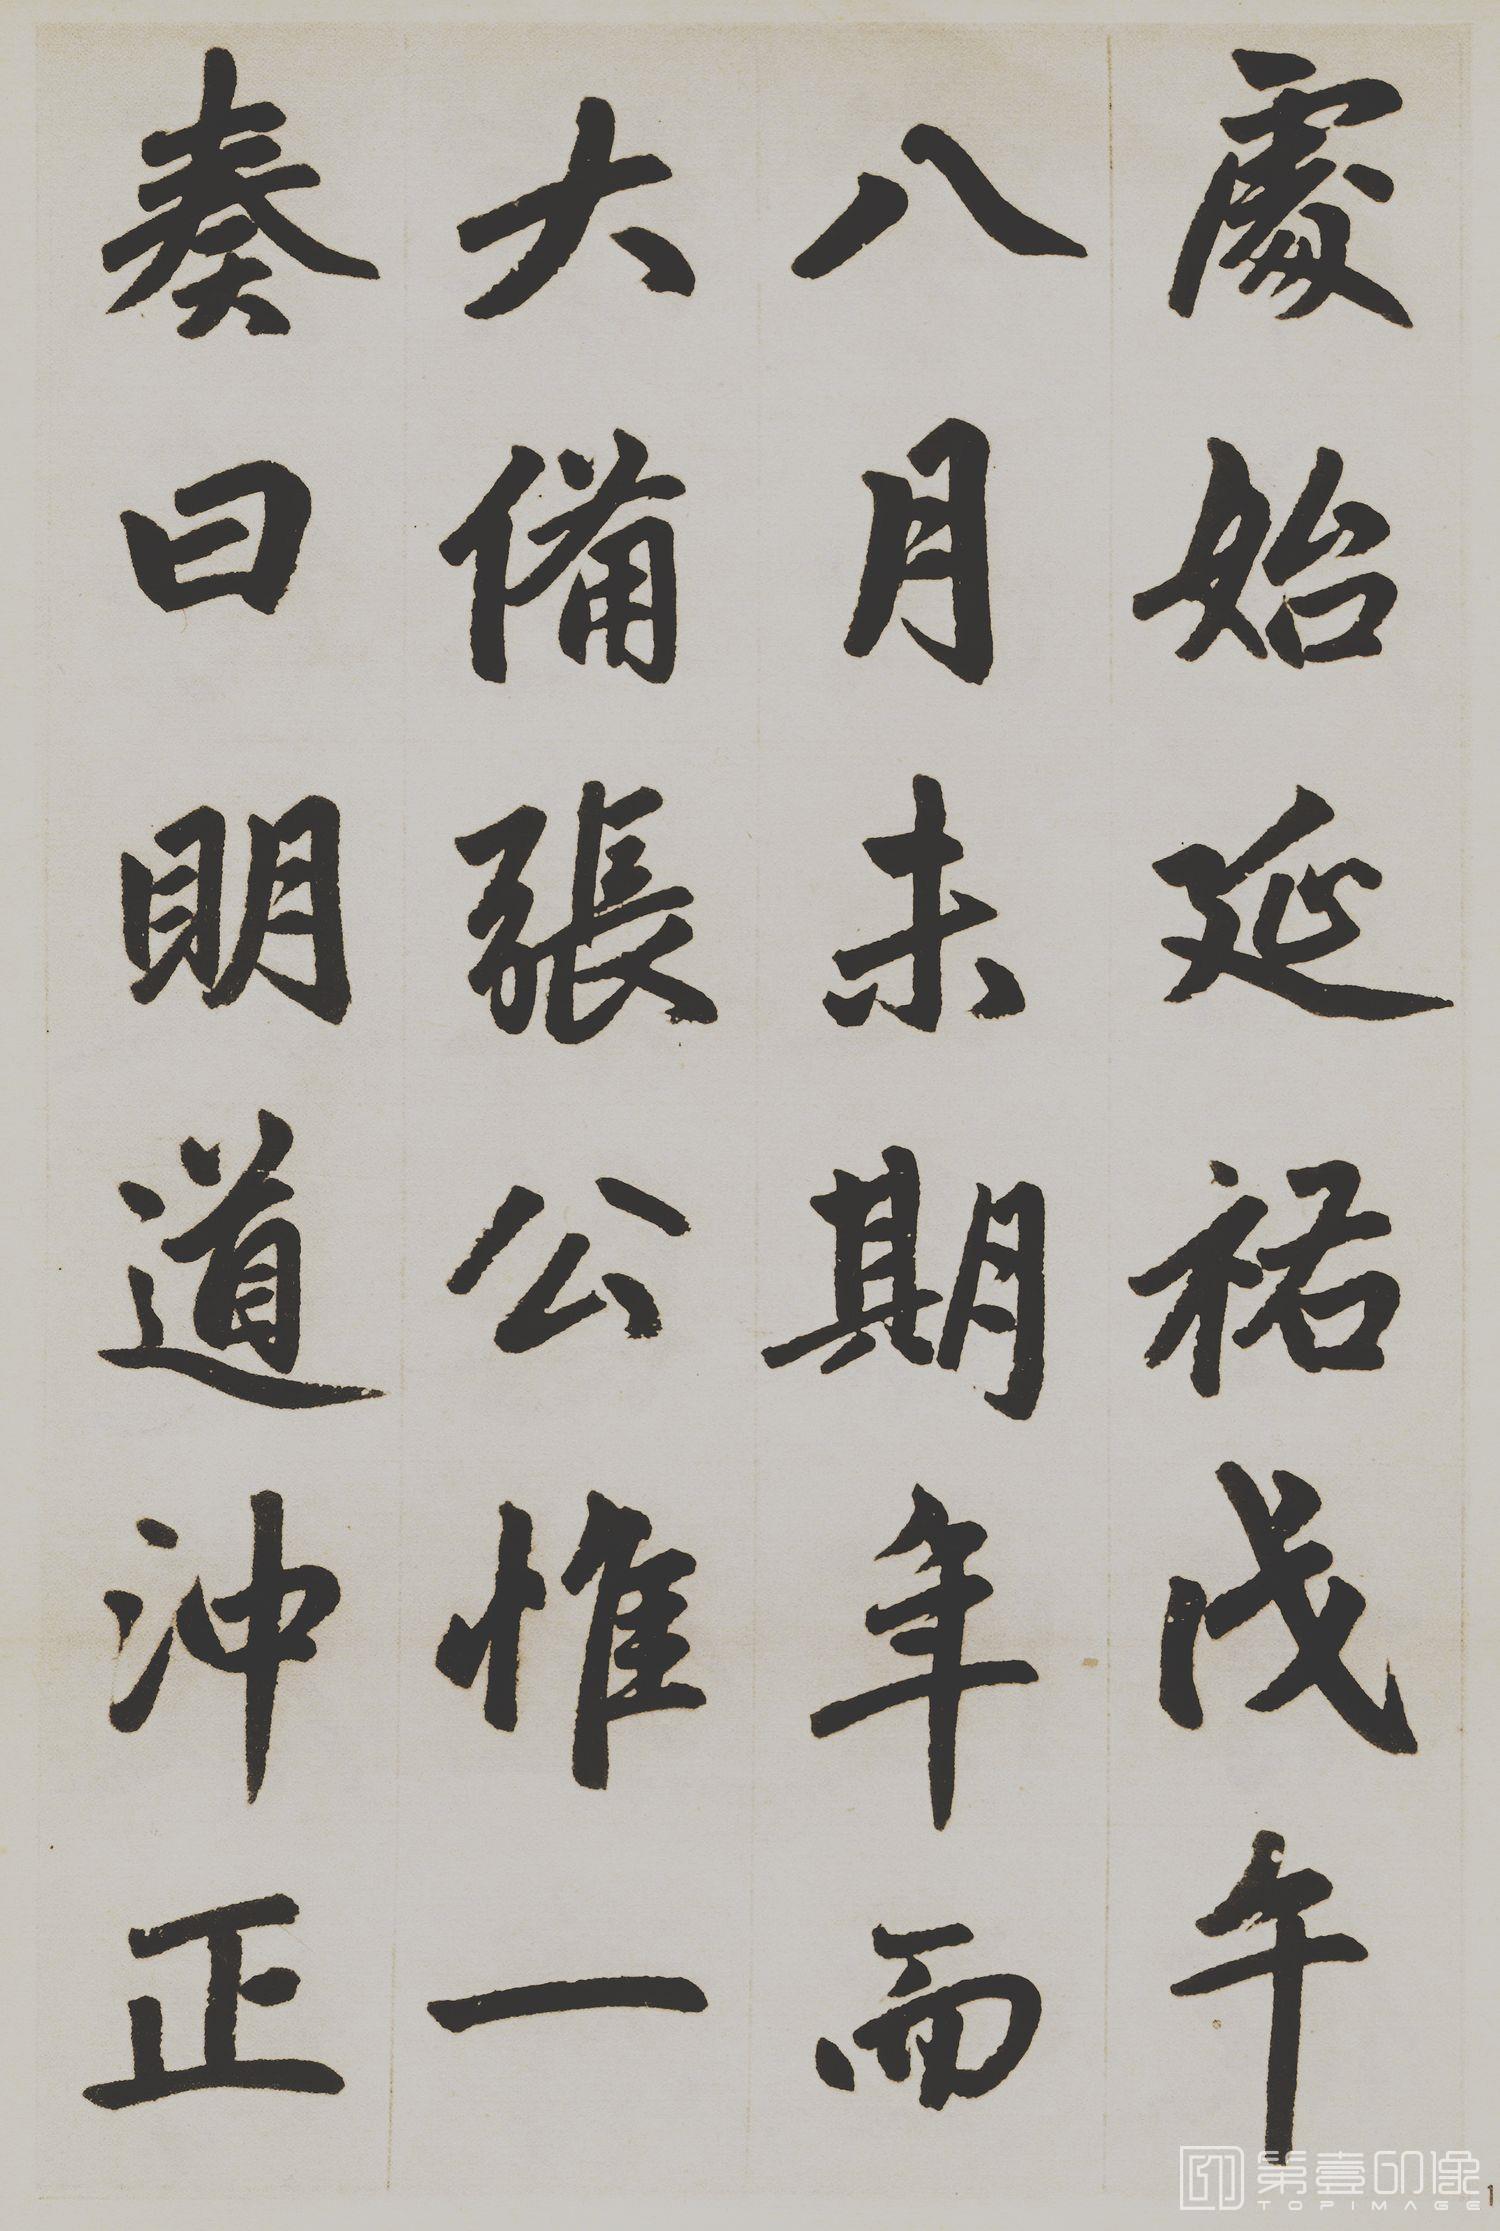 處始延祐戊午
八月未期年而
大備張公惟一
奏曰明道沖正
第壹印像
TOPIMAGE
1